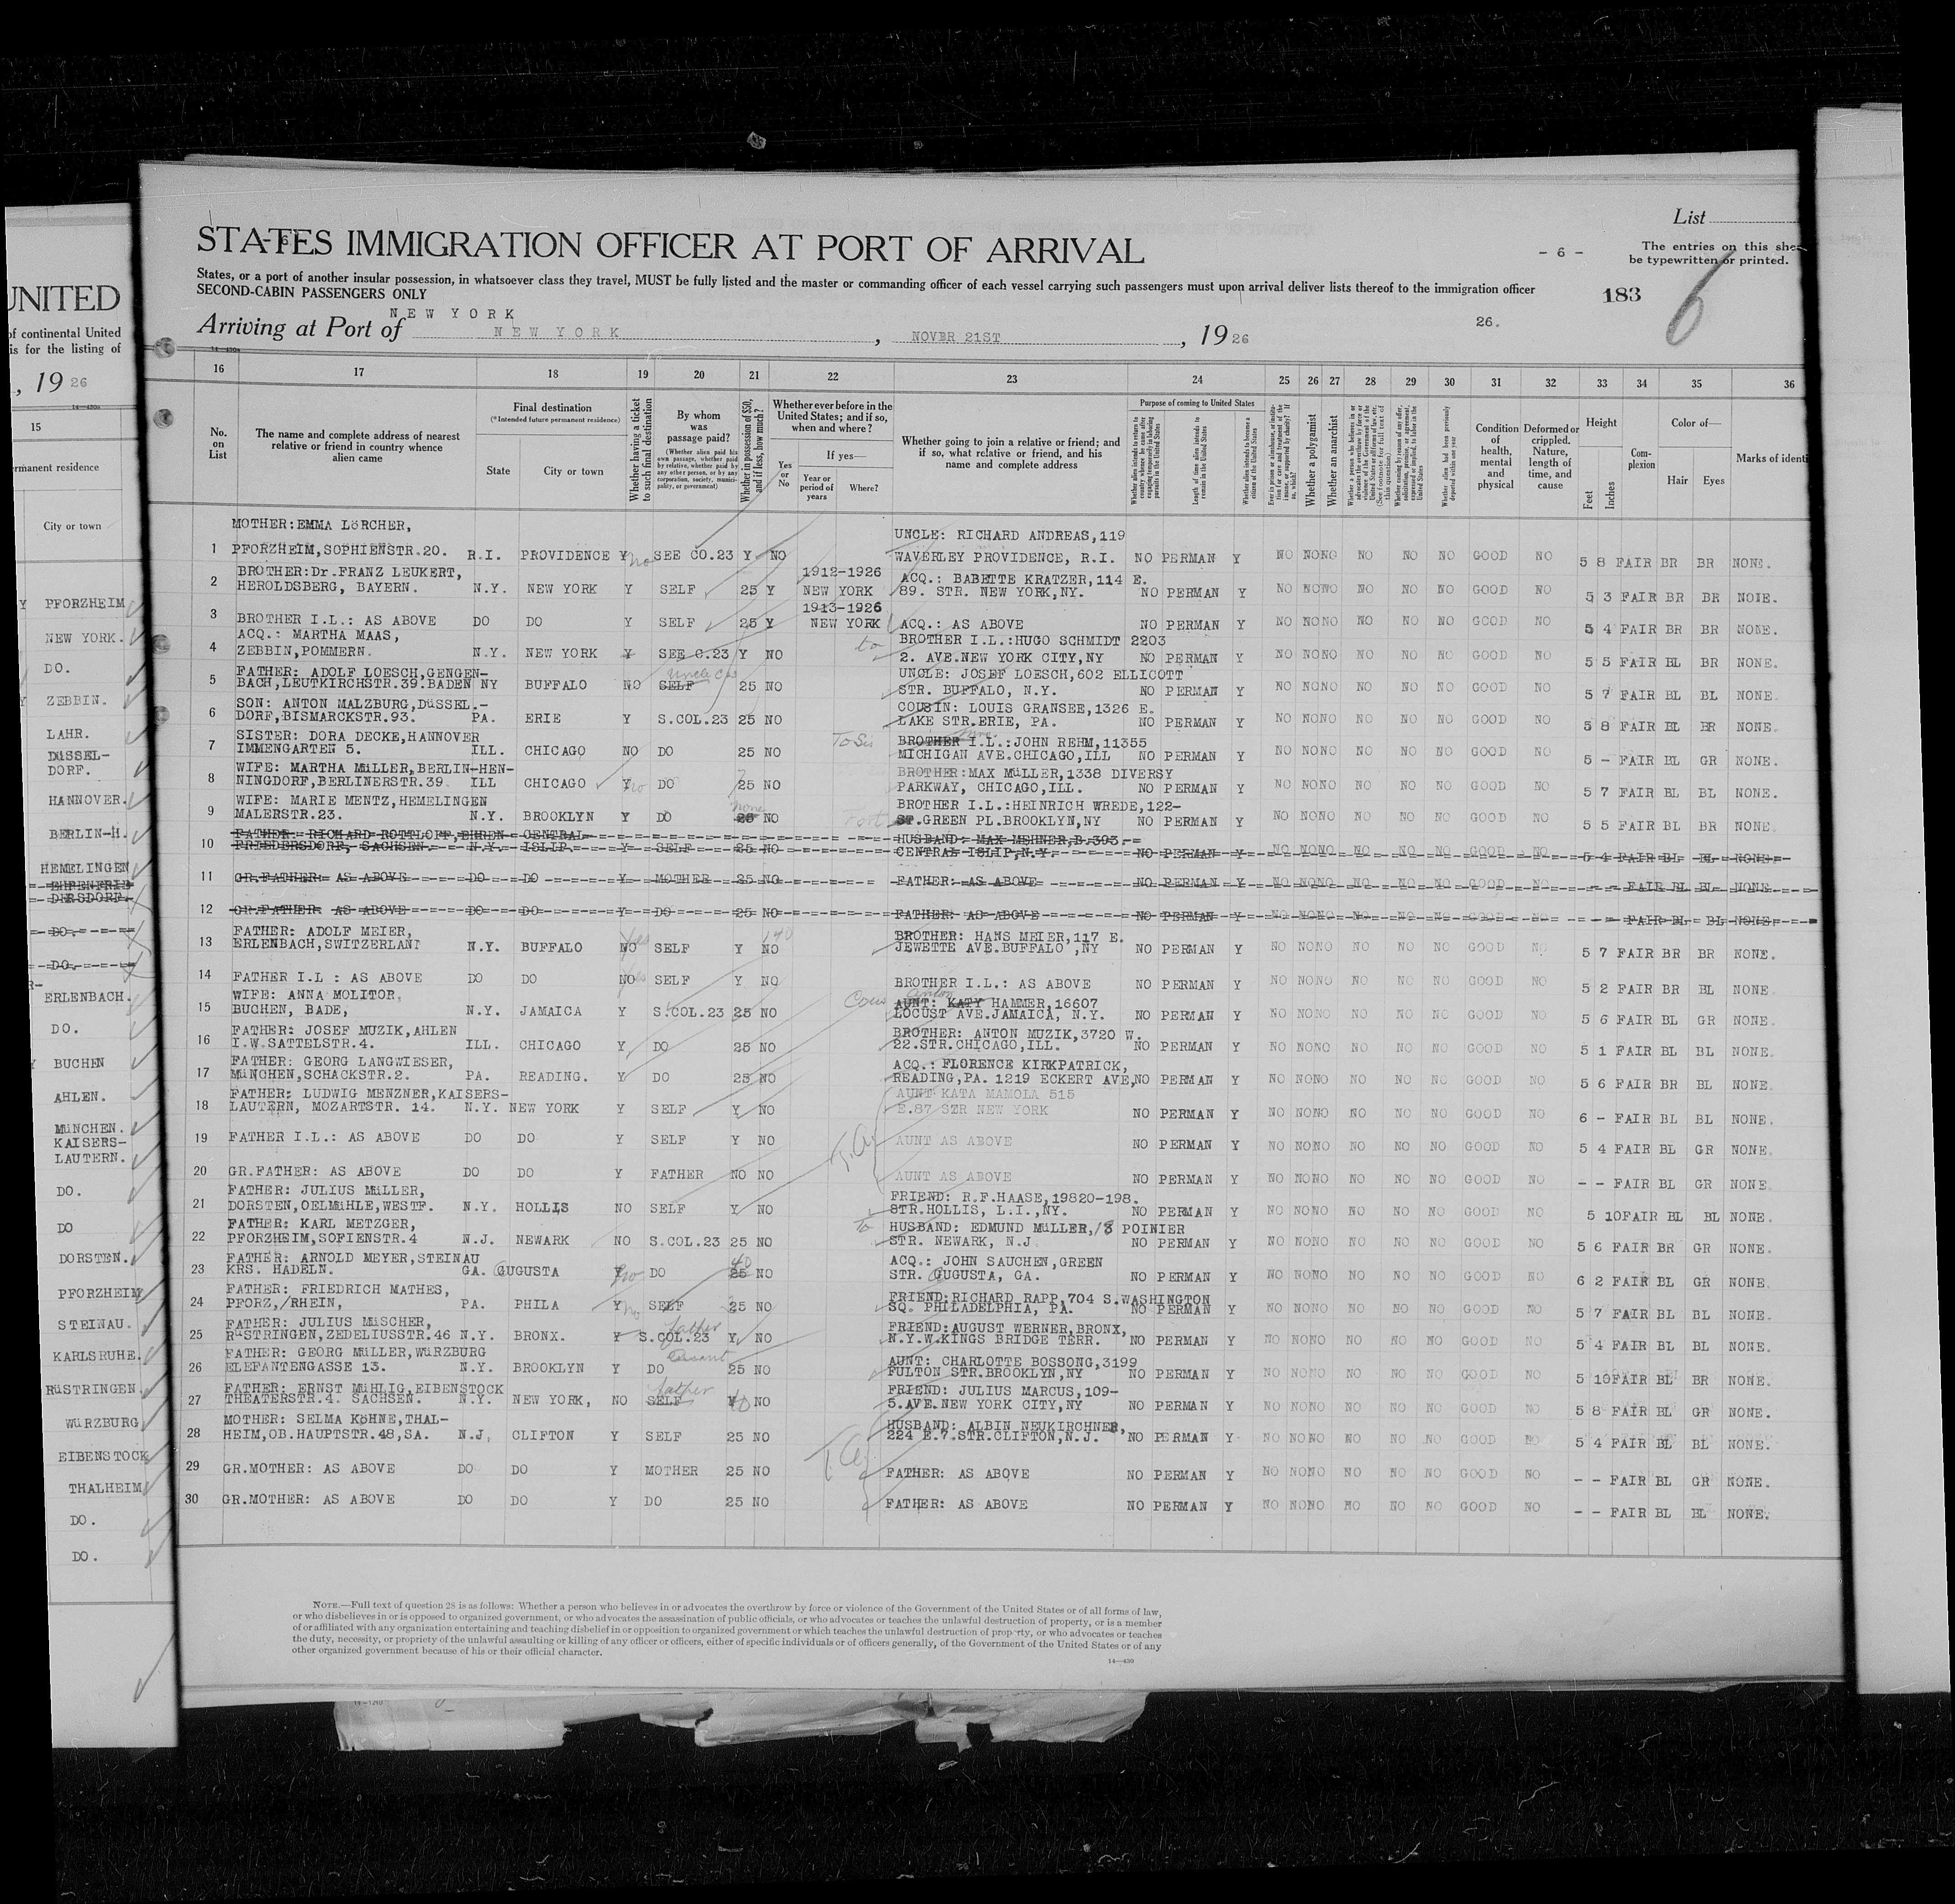 UNITED
of continental United
is for the listing of
, 19 26
15
City or town
PFORZHEIM
NEW YORK.
DO.
ZEBBIN.
LAHR.
DÜSSEL-
DORF.
HANNOVER.
BERLIN-H.
HEMELINGEN
DO.
DO.
ERLENBACH.
DO.
BUCHEN
AHLEN.
MÜNCHEN.
KAISERS-
LAUTERN.
DO.
DO
DORSTEN.
PFORZHEIM
STEINAU.
KARLSRUHE.
RÜSTRINGEN.
WÜRZBURG
EIBENSTOCK
THALHEIM
DO.
DO.
List
STATES IMMIGRATION OFFICER AT PORT OF ARRIVAL
- 6 -
The entries on this she
be typewritten or printed.
States, or a port of another insular possession, in whatsoever class they travel, MUST be fully listed and the master or commanding officer of each vessel carrying such passengers must upon arrival deliver lists thereof to the immigration officer
SECOND-CABIN PASSENGERS ONLY
183 6
NEW YORK
Arriving at Port of NEW YORK , NOVBR 21ST , 19 26
26.
16 17 18 19 20 21 22 23 24 25 26 27 28 29 30 31 32 33 34 35 36
No. on List
The name and complete address of nearest relative or friend in country whence alien came
Final destination
(*Intended future permanent residence)
State City or town
Whether having a ticket to such final destination
By whom was passage paid?
(Whether alien paid his own passage, whether paid by relative, whether paid by any other person, or by any corporation, society, municipality, or government)
Whether in possession of $50, and if less, how much?
Whether ever before in the United States; and if so, when and where?
Yes or No
If yes—
Year or period of years Where?
Whether going to join a relative or friend; and if so, what relative or friend, and his name and complete address
Purpose of coming to United States
Whether a polygamist
Whether an anarchist
Condition of health, mental and physical
Deformed or crippled. Nature, length of time, and cause
Height
Feet Inches
Complexion
Color of—
Hair Eyes
Marks of identi
MOTHER:EMMA LÖRCHER, UNCLE: RICHARD ANDREAS,119
1 PFORZHEIM,SOPHIENSTR.20. R.I. PROVIDENCE Y no SEE CO.23 Y NO WAVERLEY PROVIDENCE, R.I. NO PERMAN Y NO NO NO NO NO NO GOOD NO 5 8 FAIR BR BR NONE.
BROTHER:Dr.FRANZ LEUKERT, 1912-1926 ACQ.: BABETTE KRATZER,114 E.
2 HEROLDSBERG, BAYERN. N.Y. NEW YORK Y SELF 25 Y NEW YORK 89. STR. NEW YORK,NY. NO PERMAN Y NO NO NO NO NO NO GOOD NO 5 3 FAIR BR BR NONE.
1913-1926
3 BROTHER I.L.: AS ABOVE DO DO Y SELF 25 Y NEW YORK ACQ.: AS ABOVE NO PERMAN Y NO NO NO NO NO NO GOOD NO 5 4 FAIR BR BR NONE.
ACQ.: MARTHA MAAS, to BROTHER I.L.:HUGO SCHMIDT 2203
4 ZEBBIN,POMMERN. N.Y. NEW YORK Y SEE C.23 Y NO 2. AVE.NEW YORK CITY,NY NO PERMAN Y NO NO NO NO NO NO GOOD NO 5 5 FAIR BL BR NONE.
FATHER: ADOLF LOESCH,GENGEN- UNCLE: JOSEF LOESCH,602 ELLICOTT
5 BACH,LEUTKIRCHSTR.39.BADEN NY BUFFALO NO SELF 25 NO STR. BUFFALO, N.Y. NO PERMAN Y NO NO NO NO NO NO GOOD NO 5 7 FAIR BL BL NONE.
SON: ANTON MALZBURG,DÜSSEL.- COUSIN: LOUIS GRANSEE,1326 E.
6 DORF,BISMARCKSTR.93. PA. ERIE Y S.COL.23 25 NO LAKE STR.ERIE, PA. NO PERMAN Y NO NO NO NO NO NO GOOD NO 5 8 FAIR BL BR NONE.
SISTER: DORA DECKE,HANNOVER To Sis BROTHER I.L.:JOHN REHM,11355
7 IMMENGARTEN 5. ILL. CHICAGO NO DO 25 NO MICHIGAN AVE.CHICAGO,ILL NO PERMAN Y NO NO NO NO NO NO GOOD NO 5 - FAIR BL GR NONE.
WIFE: MARTHA MÜLLER,BERLIN-HEN- BROTHER:MAX MÜLLER,1338 DIVERSY
8 NINGDORF,BERLINERSTR.39 ILL CHICAGO Y no DO 25 NO PARKWAY, CHICAGO,ILL. NO PERMAN Y NO NO NO NO NO NO GOOD NO 5 7 FAIR BL BL NONE.
WIFE: MARIE MENTZ,HEMELINGEN none BROTHER I.L.:HEINRICH WREDE,122-
9 MALERSTR.23. N.Y. BROOKLYN Y DO 25 NO ST.GREEN PL.BROOKLYN,NY NO PERMAN Y NO NO NO NO NO NO GOOD NO 5 5 FAIR BL BR NONE.
FATHER: RICHARD ROTTLOFF,EHREN- CENTRAL HUSBAND: MAX MEHNER,B.393.
10 FRIEDERSDORF, SACHSEN. N.Y. ISLIP Y SELF 25 NO CENTRAL ISLIP,N.Y. NO PERMAN Y NO NO NO NO NO NO GOOD NO 5 4 FAIR BL BL NONE
11 GR.FATHER: AS ABOVE DO DO Y MOTHER 25 NO FATHER: AS ABOVE NO PERMAN Y NO NO NO NO NO NO GOOD NO - - FAIR BL BL NONE
12 GR.FATHER AS ABOVE DO DO Y DO 25 NO FATHER: AS ABOVE NO PERMAN Y NO NO NO NO NO NO GOOD NO - - FAIR BL BL NONE
FATHER: ADOLF MEIER, yes 140 BROTHER: HANS MEIER,117 E.
13 ERLENBACH,SWITZERLAND N.Y. BUFFALO NO SELF Y NO JEWETTE AVE.BUFFALO ,NY NO PERMAN Y NO NO NO NO NO NO GOOD NO 5 7 FAIR BR BR NONE.
14 FATHER I.L : AS ABOVE DO DO NO yes SELF Y NO BROTHER I.L.: AS ABOVE NO PERMAN Y NO NO NO NO NO NO GOOD NO 5 2 FAIR BR BL NONE
WIFE: ANNA MOLITOR, Cous AUNT: KATY HAMMER,16607
15 BUCHEN, BADE, N.Y. JAMAICA Y S.COL.23 25 NO LOCUST AVE.JAMAICA, N.Y. NO PERMAN Y NO NO NO NO NO NO GOOD NO 5 6 FAIR BL GR NONE.
FATHER: JOSEF MUZIK,AHLEN BROTHER: ANTON MUZIK,3720 W.
16 I.W.SATTELSTR.4. ILL. CHICAGO Y DO 25 NO 22.STR.CHICAGO,ILL. NO PERMAN Y NO NO NO NO NO NO GOOD NO 5 1 FAIR BL BL NONE.
FATHER: GEORG LANGWIESER, ACQ.: FLORENCE KIRKPATRICK,
17 MÜNCHEN,SCHACKSTR.2. PA. READING. Y DO 25 NO READING,PA. 1219 ECKERT AVE, NO PERMAN Y NO NO NO NO NO NO GOOD NO 5 6 FAIR BR BL NONE.
FATHER: LUDWIG MENZNER,KAISERS- AUNT KATA MAMOLA 515
18 LAUTERN, MOZARTSTR. 14. N.Y. NEW YORK Y SELF Y NO E.87 STR NEW YORK NO PERMAN Y NO NO NO NO NO NO GOOD NO 6 - FAIR BL BL NONE.
19 FATHER I.L.: AS ABOVE DO DO Y SELF Y NO AUNT AS ABOVE NO PERMAN Y NO NO NO NO NO NO GOOD NO 5 4 FAIR BL GR NONE.
20 GR.FATHER: AS ABOVE DO DO Y FATHER NO NO AUNT AS ABOVE NO PERMAN Y NO NO NO NO NO NO GOOD NO - - FAIR BL GR NONE.
FATHER: JULIUS MÜLLER, FRIEND: R.F.HAASE,19820-198.
21 DORSTEN,OELMÜHLE,WESTF. N.Y. HOLLIS NO SELF Y NO STR.HOLLIS, L.I.,NY. NO PERMAN Y NO NO NO NO NO NO GOOD NO 5 10 FAIR BL BL NONE.
FATHER: KARL METZGER, to HUSBAND: EDMUND MÜLLER,18 POINIER
22 PFORZHEIM,SOFIENSTR.4 N.J. NEWARK NO S.COL.23 25 NO STR. NEWARK, N.J NO PERMAN Y NO NO NO NO NO NO GOOD NO 5 6 FAIR BR GR NONE.
FATHER: ARNOLD MEYER,STEINAU 40 ACQ.: JOHN SAUCHEN,GREEN
23 KRS. HADELN. GA. GUGUSTA Y no DO 25 NO STR. GUGUSTA, GA. NO PERMAN Y NO NO NO NO NO NO GOOD NO 6 2 FAIR BL GR NONE.
FATHER: FRIEDRICH MATHES, FRIEND:RICHARD RAPP,704 S.WASHINGTON
24 PFORZ,/RHEIN, PA. PHILA Y no SELF 25 NO SQ. PHILADELPHIA, PA. NO PERMAN Y NO NO NO NO NO NO GOOD NO 5 7 FAIR BL BL NONE.
FATHER: JULIUS MÜSCHER, father FRIEND:AUGUST WERNER,BRONX,
25 RÜSTRINGEN,ZEDELIUSSTR.46 N.Y. BRONX. Y S.COL.23 Y NO N.Y.W.KINGS BRIDGE TERR. NO PERMAN Y NO NO NO NO NO NO GOOD NO 5 4 FAIR BL BL NONE.
FATHER: GEORG MÜLLER,WÜRZBURG AUNT: CHARLOTTE BOSSONG,3199
26 ELEFANTENGASSE 13. N.Y. BROOKLYN Y DO 25 NO FULTON STR.BROOKLYN,NY NO PERMAN Y NO NO NO NO NO NO GOOD NO 5 10 FAIR BL BR NONE.
FATHER: ERNST MÜHLIG,EIBENSTOCK father FRIEND: JULIUS MARCUS,109-
27 THEATERSTR.4. SACHSEN. N.Y. NEW YORK, NO SELF Y NO 5.AVE.NEW YORK CITY,NY NO PERMAN Y NO NO NO NO NO NO GOOD NO 5 8 FAIR BL GR NONE.
MOTHER: SELMA KÖHNE,THAL- HUSBAND: ALBIN NEUKIRCHNER,
28 HEIM,OB.HAUPTSTR.48,SA. N.J. CLIFTON Y SELF 25 NO 224 E.7.STR.CLIFTON,N.J. NO PERMAN Y NO NO NO NO NO NO GOOD NO 5 4 FAIR BL BL NONE.
29 GR.MOTHER: AS ABOVE DO DO Y MOTHER 25 NO FATHER: AS ABOVE NO PERMAN Y NO NO NO NO NO NO GOOD NO - - FAIR BL GR NONE.
30 GR.MOTHER: AS ABOVE DO DO Y DO 25 NO FATHER: AS ABOVE NO PERMAN Y NO NO NO NO NO NO GOOD NO - - FAIR BL BL NONE.
NOTE.—Full text of question 28 is as follows: Whether a person who believes in or advocates the overthrow by force or violence of the Government of the United States or of all forms of law,
or who disbelieves in or is opposed to organized government, or who advocates the assassination of public officials, or who advocates or teaches the unlawful destruction of property, or is a member
of or affiliated with any organization entertaining and teaching disbelief in or opposition to organized government or which teaches the unlawful destruction of property, or who advocates or teaches
the duty, necessity, or propriety of the unlawful assaulting or killing of any officer or officers, either of specific individuals or of officers generally, of the Government of the United States or of any
other organized government because of his or their official character.
14—430